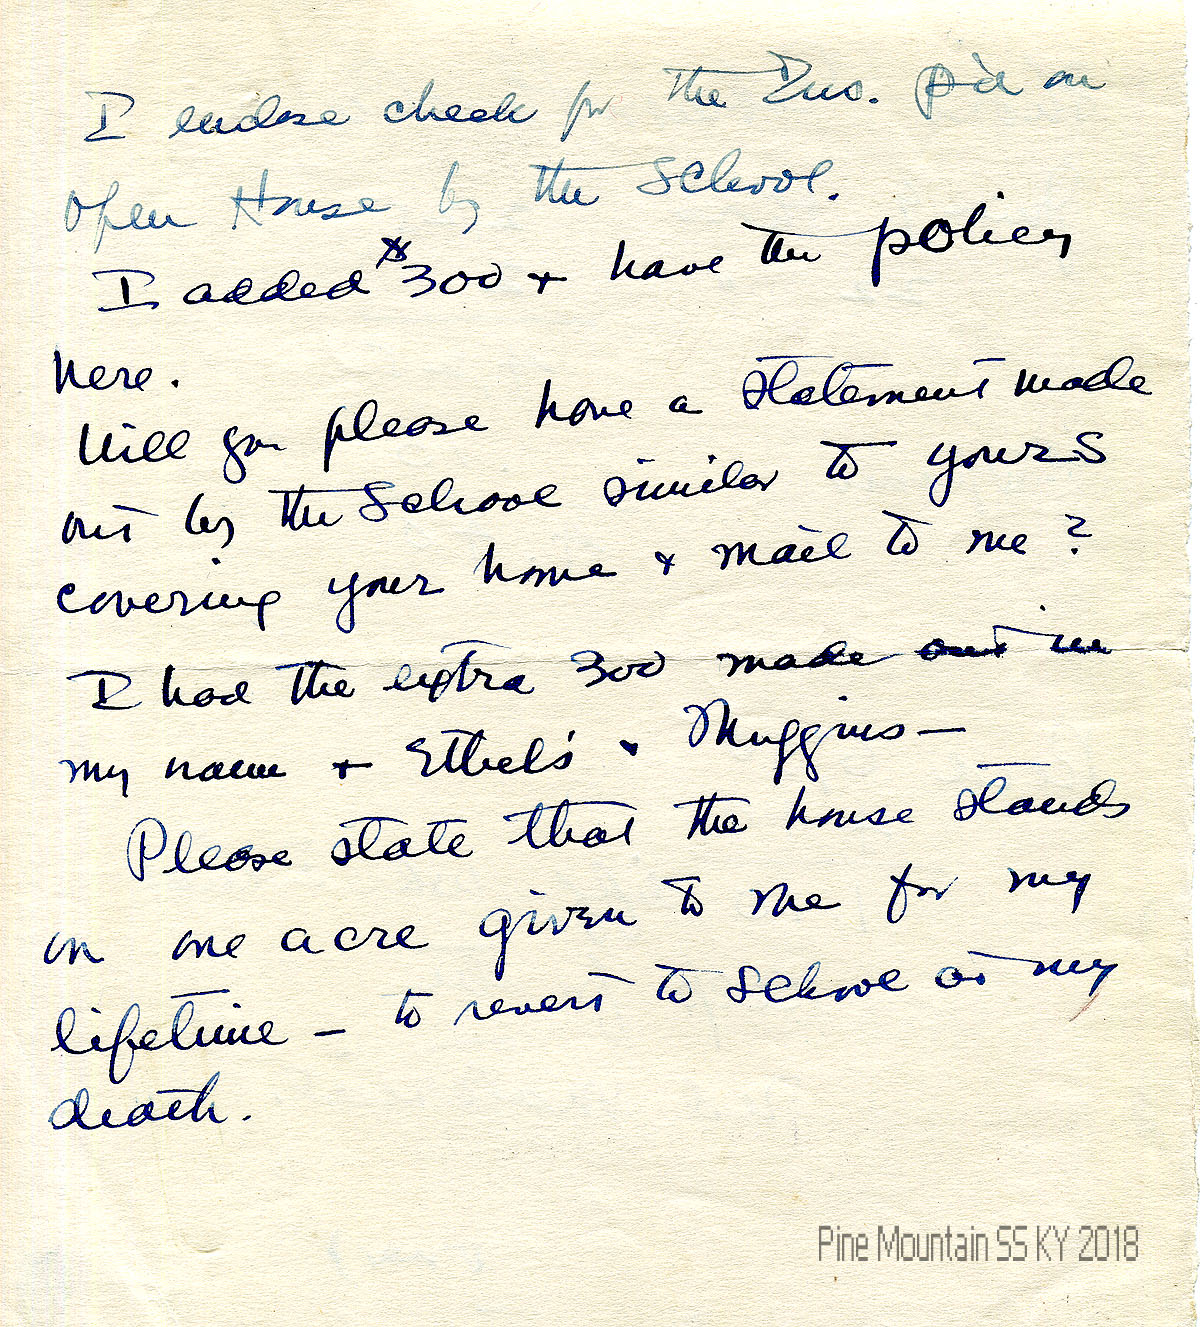 I enclose check for the Ins. p'd on
Open House by the School.
I added $300 + have the policy
here.
Will you please have a statement made
out by the School similar to yours
covering your home + mail to me?
I had the extra 300 made out in
my name + Ethel's + Muggins —
Please state that the house stands
on one acre given to me for my
lifetime — to revert to School at my
death.
Pine Mountain SS KY 2018